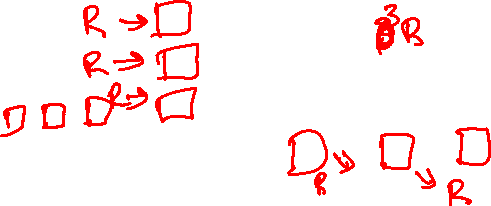 R →
R →
R →
3R
R
R